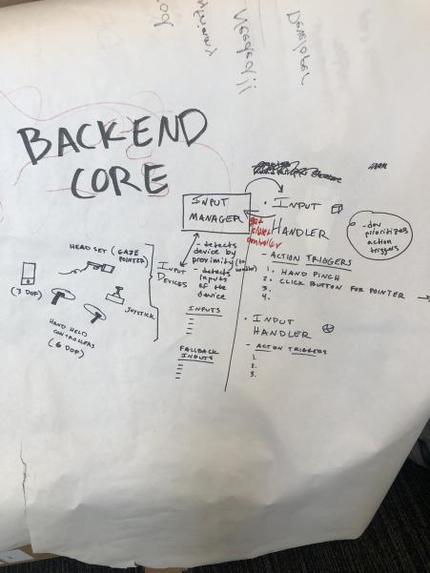 Developer
BACKEND
CORE
INPUT
MANAGER
- detects
device by
proximity (to
- detects
inputs
of the
device
INPUT
DEVICES
INPUTS
FALLBACK
INPUTS
HEADSET (GAZE
POINTER)
(3 DOF)
JOYSTICK
HAND HELD
CONTROLLERS
(6 DOF)
• INPUT
HANDLER
get
closest
controller
- ACTION TRIGGERS
1. HAND PINCH
2. CLICK BUTTON FOR POINTER →
3.
4.
- dev
prioritizes
action
triggers
• INPUT
HANDLER
- ACTION TRIGGERS
1.
2.
3.